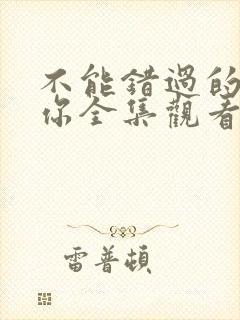 不能錯過的
你全集觀看
雷普頓